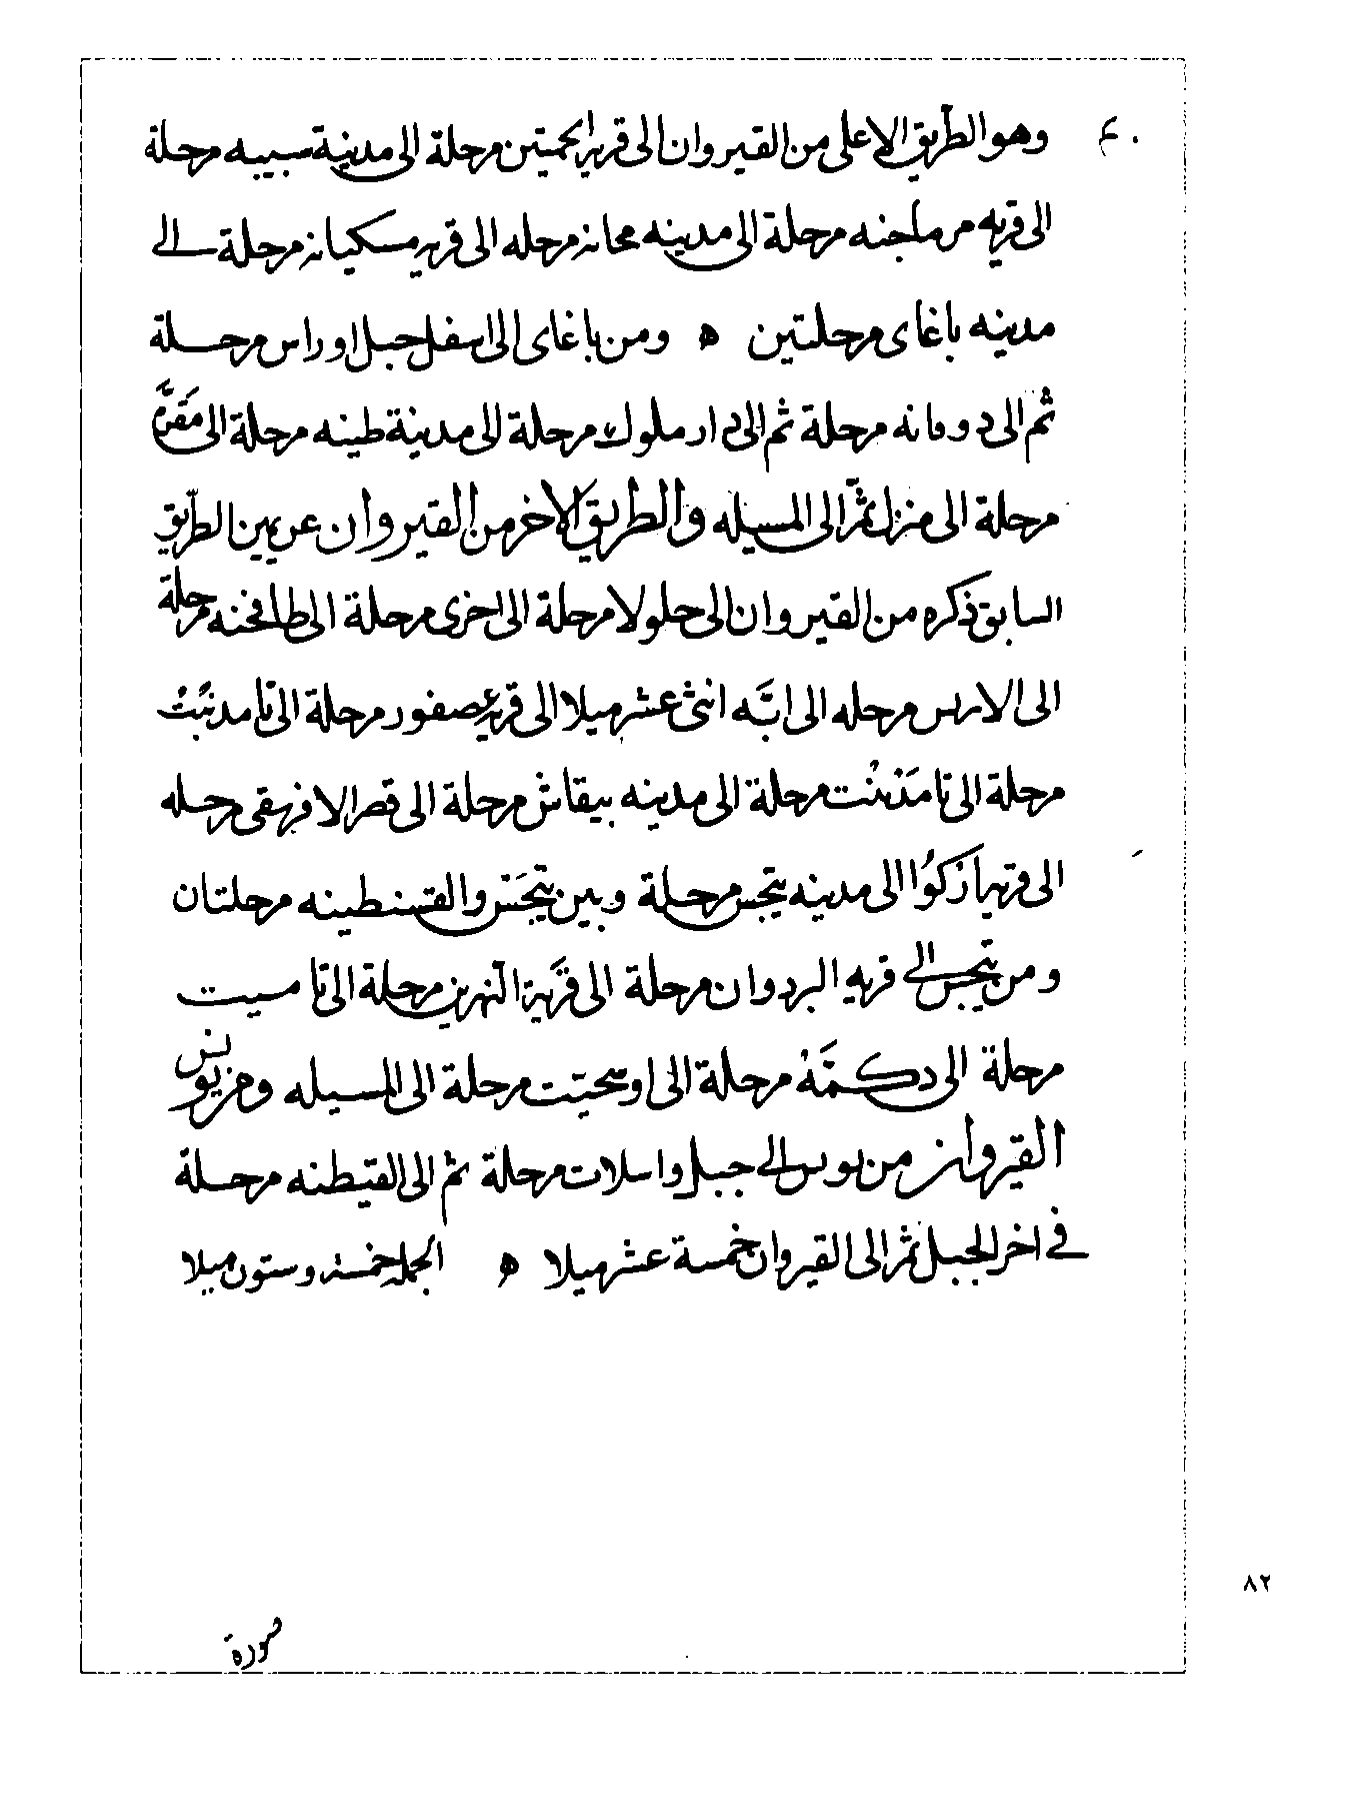 وهو الطريق الاعلى من القيروان الى قرية الجمتين مرحلة الى مدينة سبيبه مرحلة
الى قريه مرماجنه مرحلة الى مدينه مجانه مرحله الى قريه مسكيانه مرحلة الى
مدينه باغاى مرحلتين ه ومن باغاى الى اسفل جبل اوراس مرحلة
ثم الى دوفانه مرحلة ثم الى دار ملول مرحلة الى مدينة طبنه مرحلة الى مَقَّرَه
مرحلة الى منزل ثم الى المسيله والطريق الاخر من القيروان عن يمين الطريق
السابق ذكره من القيروان الى جلولا مرحلة الى اخرى مرحلة الى طافجنه مرحلة
الى الاربس مرحله الى ابَّه اثنى عشر ميلا الى قريه عصفور مرحلة الى تامدنت
مرحلة الى تامَدْنْت مرحلة الى مدينه بيقاش مرحلة الى قصر الافريقى مرحله
الى قريه ازكوا الى مدينه تيجس مرحلة وبين تيجَس والقسنطينه مرحلتان
ومن تيجس الى قريه البردوان مرحلة الى قَرْية النهرين مرحلة الى تامسيت
مرحلة الى دكَمَّهْ مرحلة الى اوسجيت مرحلة الى المسيله ومن تونس
القيروان من تونس الى جبل واسلات مرحلة ثم الى القيطنه مرحلة
فى اخر الجبل ثم الى القيروان خمسة عشر ميلا ه الجمله خمسه وستون ميلا
صورة
٨٢